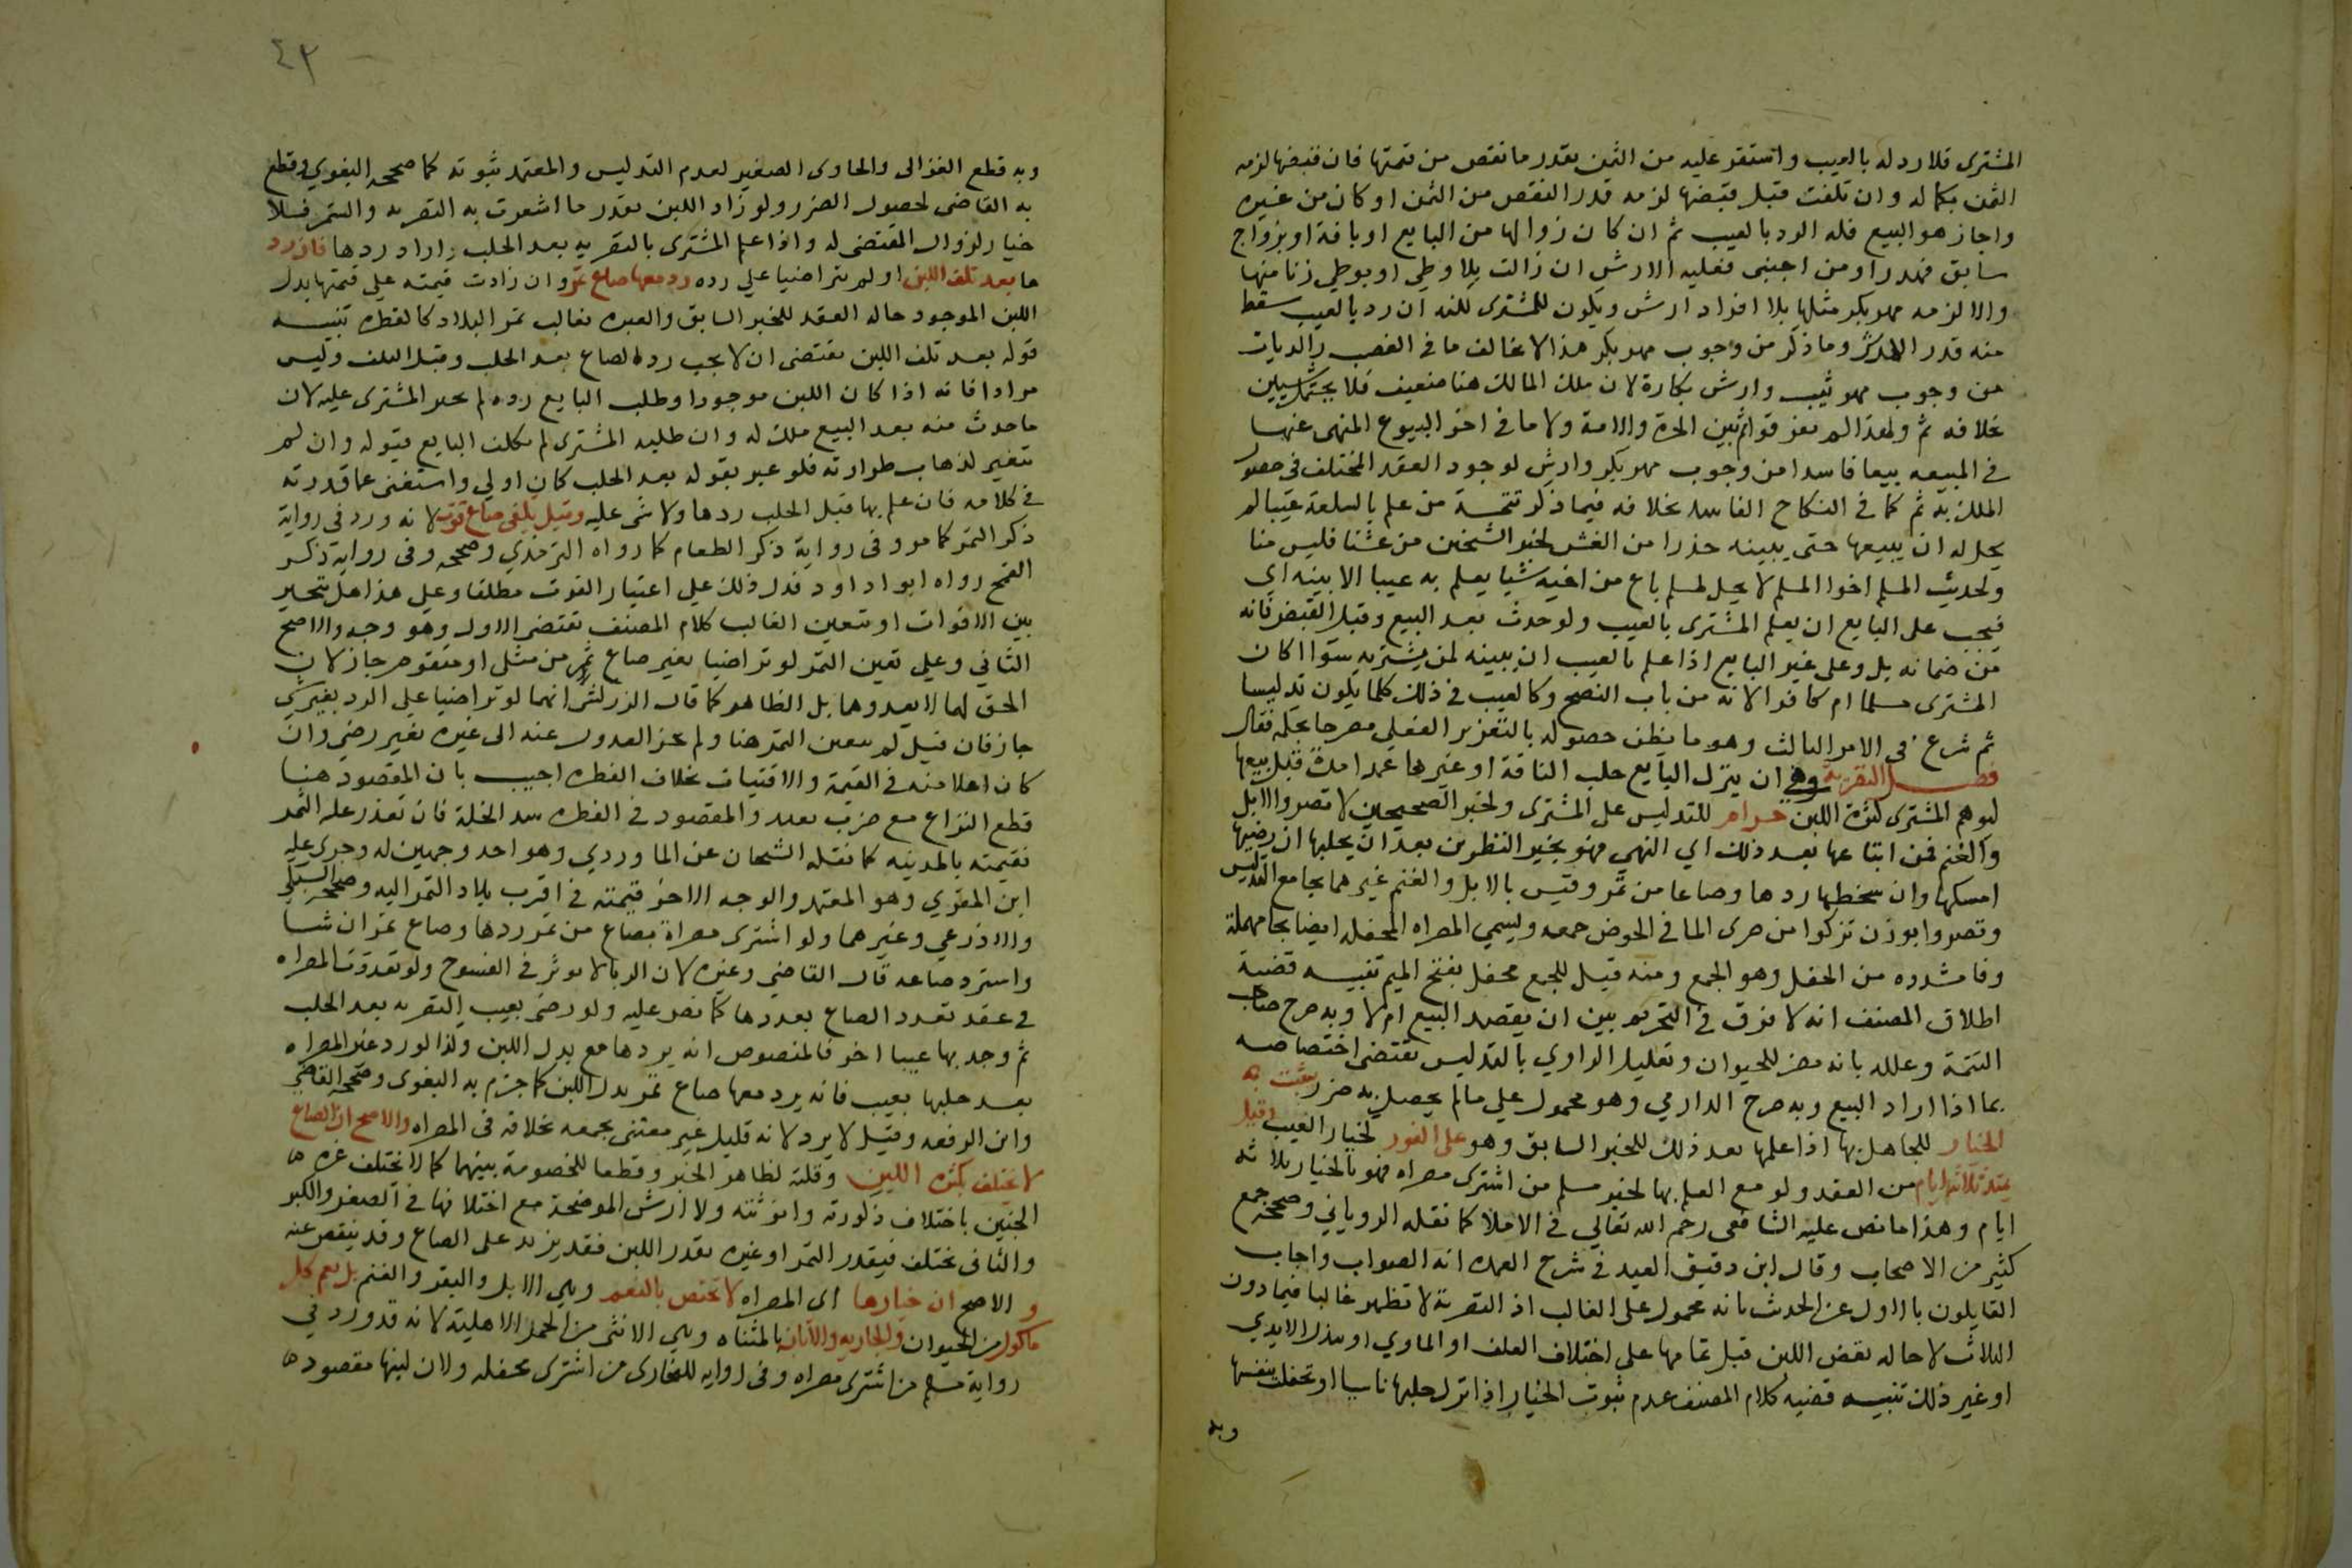 المشترى فلا رد له بالعيب واستقر عليه من الثمن بقدر ما نقص من قيمتها فان قبضها لزمه
الثمن بكماله وان تلفت قبل قبضها لزمه قدر النقص من الثمن او كان من غيره
واجاز هو البيع فله الرد بالعيب ثم ان كان زوالها من البايع او بافة او بزواج
سابق فهدر او من اجنبى فعليه الارش ان زالت بلا وطى او بوطى زنا منها
والا لزمه مهر بكر مثلها بلا افراد ارش ويكون للمشترى لكنه ان رد بالعيب سقط
منه قدر الارش وما ذكر من وجوب مهر بكر هذا لا يخالف ما فى الغصب والديات
من وجوب مهر ثيب وارش بكارة لان ملك المالك هنا ضعيف فلا يحتمل شيين
بخلافه ثم ولهذا لم يفرقوا ثم بين الحرة والامة ولا ما فى اخر البيوع المنهى عنها
فى المبيعه بيعا فاسدا من وجوب مهر بكر وارش لوجود العقد المختلف فى حصول
الملك به ثم كما فى النكاح الفاسد بخلافه فيما ذكر تتمة من علم بالسلعة عيبا لم
يحل له ان يبيعها حتى يبينه حذرا من الغش لخبر الشيخين من غشنا فليس منا
ولحديث المسلم اخوا المسلم لا يحل لمسلم باع من اخيه شيا يعلم به عيبا الا بينه اي
فيجب على البايع ان يعلم المشترى بالعيب ولو حدث بعد البيع وقبل القبض فانه
من ضمانه بل وعلى غير البايع اذا علم بالعيب ان يبينه لمن يشتريه سوا اكان
المشترى مسلما ام كافرا لانه من باب النصح وكالعيب فى ذلك كلما يكون تدليسا
ثم شرع فى الامر الثالث وهو ما يظن حصوله بالتغرير الفعلى مصرحا بحكمه فقال
فصل التصرية وهى ان يترك البايع حلب الناقة او غيرها عمدا مدة قبل بيعها
ليوهم المشترى كثرة اللبن حرام للتدليس على المشترى ولخبر الصحيحين لا تصروا الابل
والغنم فمن ابتاعها بعد ذلك اي النهي فهو بخير النظرين بعد ان يحلبها ان رضيها
امسكها وان سخطها ردها وصاعا من تمر وقيس بالابل والغنم غيرهما بجامع التدليس
وتصروا بوزن تزكوا من صرى الما فى الحوض جمعه ويسمي المصراه المحفله ايضا بحا مهملة
وفا مشدده من الحفل وهو الجمع ومنه قيل للجمع محفل بفتح الميم تنبيه قضية
اطلاق المصنف انه لا فرق فى التحريم بين ان يقصد البيع ام لا وبه صرح صاحب
التتمة وعلله بانه مضر للحيوان وتعليل الراوي بالتدليس يقتضى اختصاصه
بما اذا اراد البيع وبه صرح الدارمي وهو محمول على مالم يحصل به ضرر يثبت به
الخيار للجاهل بها اذا علمها بعد ذلك للخبر السابق وهو على الفور كخيار العيب وقيل
يمتد ثلاثة ايام من العقد ولو مع العلم بها لخبر مسلم من اشترى مصراه فهو بالخيار ثلاثه
ايام وهذا ما نص عليه الشافعى رحم الله تعالي فى الاملا كما نقله الروياني وصححه جمع
كثير من الاصحاب وقال ابن دقيق العيد فى شرح العمده انه الصواب واجاب
القايلون بالاول عن الحديث بانه محمول على الغالب اذ التصرية لا تظهر غالبا فيما دون
الثلاث لاحاله نقص اللبن قبل تمامها على اختلاف العلف او الماوي او تبدل الايدي
او غير ذلك تنبيه قضيه كلام المصنف عدم ثبوت الخيار اذا ترك حلبها ناسيا او تحفلت بنفسها
وبه
٤٣
وبه قطع الغزالى والحاوى الصغير لعدم التدليس والمعتمد ثبوته كما صححه البغوي وقطع
به القاضى لحصول الضرر ولو زاد اللبن بقدر ما اشعرت به التصريه واستمر فلا
خيار لزوال المقتضى له واذا علم المشترى بالتصريه بعد الحلب واراد ردها فان رد
ها بعد تلف اللبن او لم يتراضيا علي رده رد معها صاع تمر وان زادت قيمته على قيمتها بدل
اللبن الموجود حاله العقد للخبر السابق والعبره بغالب تمر البلاد كالفطره تنبيه
قوله بعد تلف اللبن يقتضى ان لا يجب رد الصاع بعد الحلب وقبل التلف وليس
مرادا فانه اذا كان اللبن موجودا وطلب البايع رده لم يجبر المشترى عليه لان
ما حدث منه بعد البيع ملك له وان طلبه المشترى لم يكلف البايع قبوله وان لم
يتغير لذهاب طراوته فلو عبر بقوله بعد الحلب كان اولي واستغنى عما قدرته
فى كلامه فان علم بها قبل الحلب ردها ولا شى عليه وقيل يكفى صاع قوت لانه ورد فى رواية
ذكر التمر كما مر وفى رواية ذكر الطعام كما رواه الترمذي وصححه وفى رواية ذكر
القمح رواه ابو داود فدل ذلك على اعتبار القوت مطلقا وعلى هذا هل يتخير
بين الاقوات او يتعين الغالب كلام المصنف يقتضى الاول وهو وجه والاصح
الثاني وعلى تعين التمر لو تراضيا بغير صاع تمر من مثلى او متقوم جاز لان
الحق لهما لا يعدوهما بل الظاهر كما قال الزركشى انهما لو تراضيا على الرد بغير شى
جاز فان قيل لم يتعين التمر هنا ولم يجز العدول عنه الى غيره بغير رضى وان
كان اعلا منه فى القيمة والاقتيات بخلاف الفطره اجيب بان المقصود هنا
قطع النزاع مع ضرب تعبد والمقصود فى الفطره سد الخلة فان تعذر عليه التمر
فقيمته بالمدينه كما نقله الشيخان عن الماوردي وهو احد وجهين له وجرى عليه
ابن المقري وهو المعتمد والوجه الاخر قيمته فى اقرب بلاد التمر اليه وصححه السبكى
والاذرعي وغيرهما ولو اشترى مصراة بصاع من تمر ردها وصاع تمر ان شا
واسترد صاعه قال القاضي وغيره لان الربا لا يوثر فى الفسوخ ولو تعددت المصراه
فى عقد تعدد الصاع بعددها كما نص عليه ولو رضى بعيب التصريه بعد الحلب
ثم وجد بها عيبا اخر فالمنصوص انه يردها مع بدل اللبن ولذا لو رد غير المصراه
بعد حلبها بعيب فانه يرد معها صاع تمر بدل اللبن كما جزم به البغوى وصححه القاضى
وابن الرفعه وقيل لا يرد لانه قليل غير معتنى بجمعه بخلافه فى المصراه والاصح ان الصاع
لا يختلف بكثره اللبن وقلته لظاهر الخبر وقطعا للخصومة بينهما كما لا تختلف غره
الجنين باختلاف ذكورته وانوثته ولا ارش الموضحة مع اختلافها فى الصغر والكبر
والثانى يختلف فيقدر التمر او غيره بقدر اللبن فقد يزيد على الصاع وقد ينقص عنه
و الاصح ان خيارها اى المصراه لا يختص بالنعم وهي الابل والبقر والغنم بل يعم كل
ماكول من الحيوان والجاريه والاتان بالمثناه وهي الانثى من الحمر الاهلية لانه قد ورد فى
رواية مسلم من اشترى مصراه وفى روايه للبخارى من اشترى محفله ولان لبنها مقصود